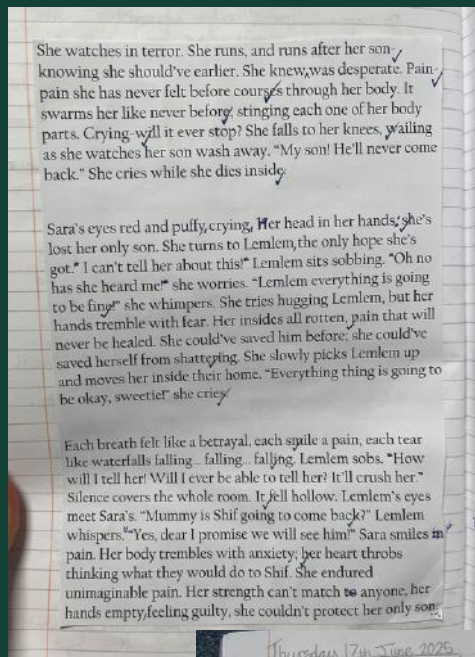 She watches in terror. She runs, and runs after her son-
knowing she should've earlier. She knew, was desperate. Pain-
pain she has never felt before courses through her body. It
swarms her like never before, stinging each one of her body
parts. Crying-will it ever stop? She falls to her knees, wailing
as she watches her son wash away. "My son! He'll never come
back." She cries while she dies inside.
Sara's eyes red and puffy, crying, Her head in her hands, she's
lost her only son. She turns to Lemlem, the only hope she's
got." I can't tell her about this!" Lemlem sits sobbing. "Oh no
has she heard me!" she worries. "Lemlem everything is going
to be fine!" she whimpers. She tries hugging Lemlem, but her
hands tremble with fear. Her insides all rotten, pain that will
never be healed. She could've saved him before; she could've
saved herself from shattering. She slowly picks Lemlem up
and moves her inside their home. "Everything thing is going to
be okay, sweetie!" she cries
Each breath felt like a betrayal, each smile a pain, each tear
like waterfalls falling... falling... falling. Lemlem sobs. "How
will I tell her! Will I ever be able to tell her? It'll crush her."
Silence covers the whole room. It fell hollow. Lemlem's eyes
meet Sara's. "Mummy is Shif going to come back?" Lemlem
whispers. "Yes, dear I promise we will see him!" Sara smiles in
pain. Her body trembles with anxiety; her heart throbs
thinking what they would do to Shif. She endured
unimaginable pain. Her strength can't match to anyone, her
hands empty, feeling guilty, she couldn't protect her only son.
Thursday 17th June 2025